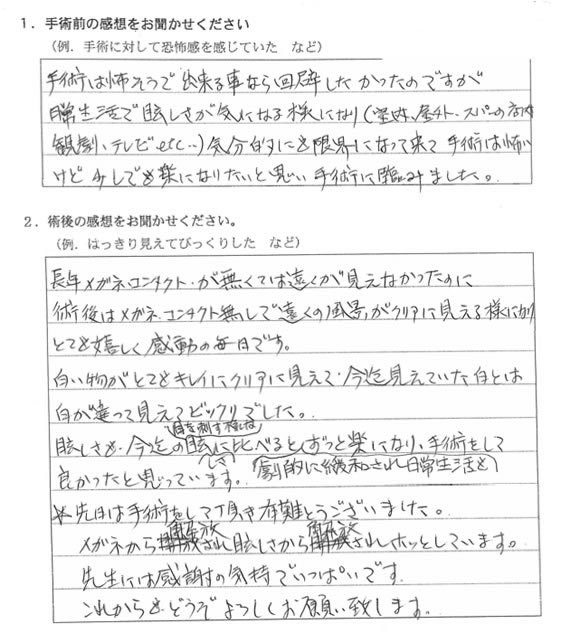 1．手術前の感想をお聞かせください
（例．手術に対して恐怖感を感じていた　など）
手術は怖そうで出来る事なら回避したかったのですが
日常生活で眩しさが気になる様になり（室内、屋外、スーパーの店内
観劇、テレビetc…）気分的にも限界になって来て手術は怖い
けど少しでも楽になりたいと思い手術に臨みました。
2．術後の感想をお聞かせください。
（例．はっきり見えてびっくりした　など）
長年メガネ、コンタクト・が無くては遠くが見えなかったのに
術後はメガネ、コンタクト無しで遠くの風景がクリアに見える様になり
とても嬉しく感動の毎日です。
白い物がとてもキレイにクリアに見えて・今迄見えていた白とは
白が違って見えてビックリでした。
目を刺す様な
眩しさも・今迄の眩しさに比べるとずっと楽になり、手術をして
良かったと思っています。（劇的に緩和され日常生活も）
＊先日は手術をして頂き有難とうございました。
メガネから解放され眩しさから解放されホッとしています。
先生には感謝の気持でいっぱいです
これからもどうぞよろしくお願い致します。